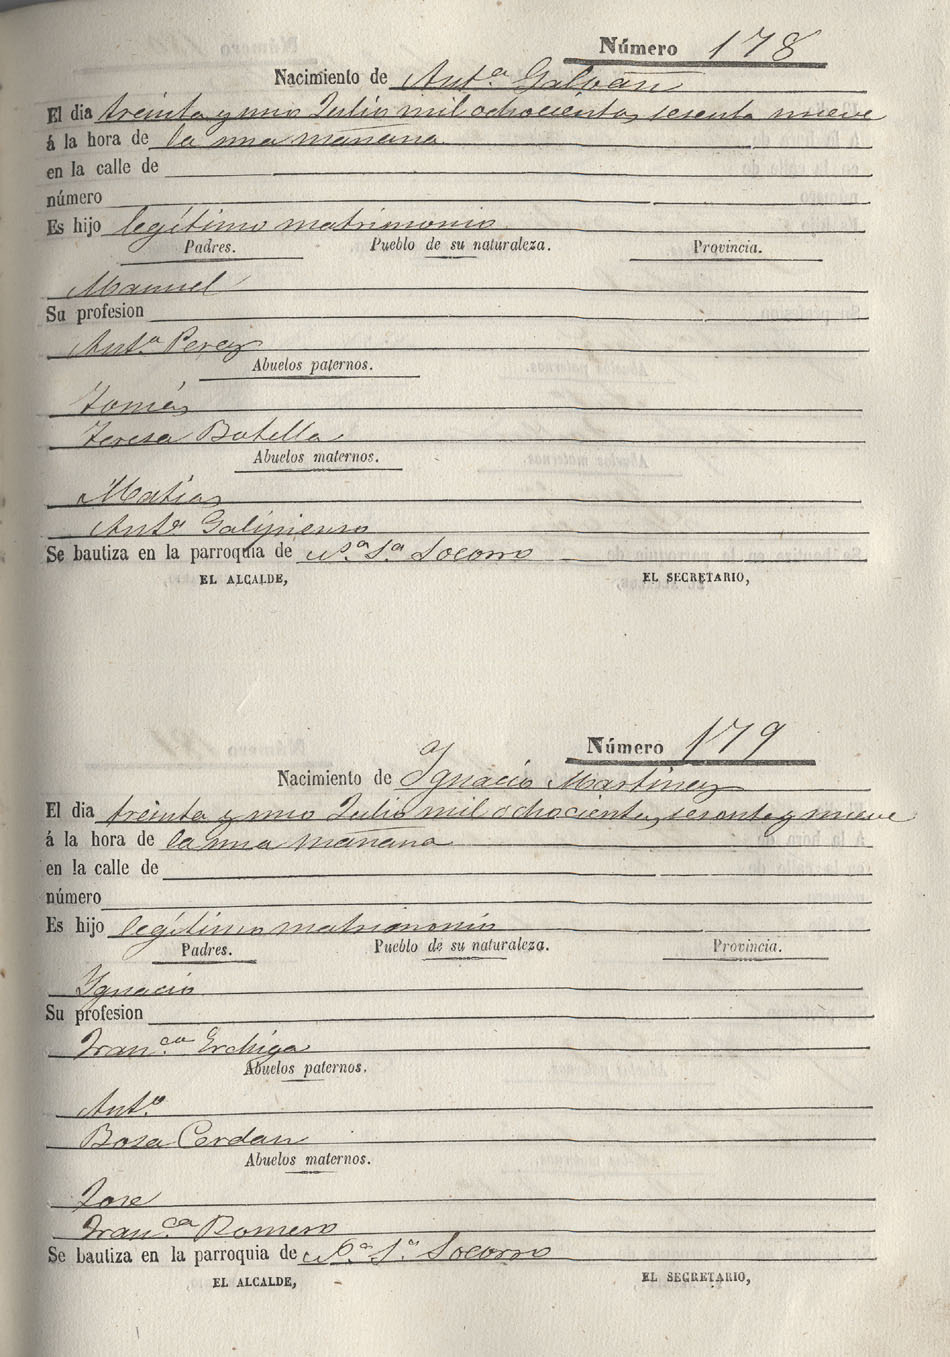 Número 178
Nacimiento de Ant.ª Galván
El dia treinta y uno Julio mil ochocientos sesenta nueve
á la hora de la una mañana
en la calle de
número
Es hijo legítimo matrimonio
Padres. Pueblo de su naturaleza. Provincia.
Manuel
Su profesion
Ant.ª Perez
Abuelos paternos.
Tomás
Teresa Botella
Abuelos maternos.
Matias
Ant.ª Galipienso
Se bautiza en la parroquia de N.ª S.ª Socorro
EL ALCALDE, EL SECRETARIO,
Número 179
Nacimiento de Ignacio Martinez
El dia treinta y uno Julio mil ochocientos sesenta y nueve
á la hora de la una mañana
en la calle de
número
Es hijo legítimo matrimonio
Padres. Pueblo de su naturaleza. Provincia.
Ignacio
Su profesion
Fran.ca Erchiga
Abuelos paternos.
Ant.º
Rosa Cerdan
Abuelos maternos.
Jose
Fran.ca Romero
Se bautiza en la parroquia de N.ª S.ª Socorro
EL ALCALDE, EL SECRETARIO,